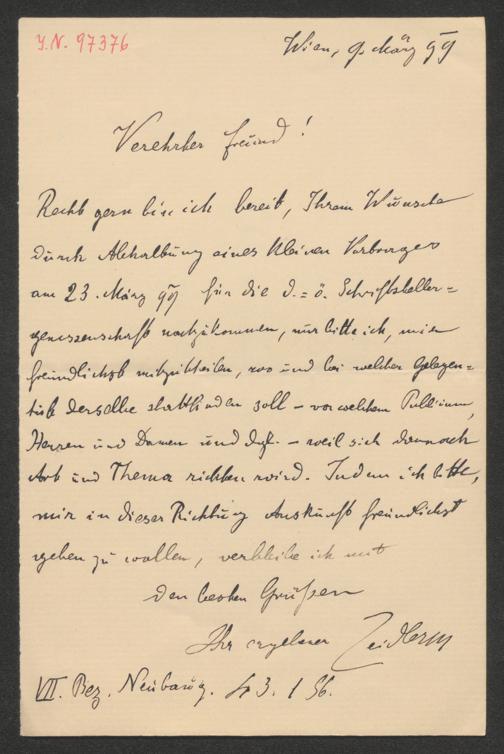 J.N. 97376
Wien, 9. März 99
Verehrter Freund!
Recht gern bin ich bereit, Ihrem Wunsche
durch Abhaltung eines kleinen Vortrages
am 23. März 99 für die d.-ö. Schriftsteller=
genossenschaft nachzukommen, nur bitte ich, mir
freundlichst mitzutheilen, wo und bei welcher Gelegen=
heit derselbe stattfinden soll – vor welchem Publicum,
Herren und Damen und dgl. – weil sich darnach
Art und Thema richten wird. Indem ich bitte,
mir in dieser Richtung Auskunft freundlichst
geben zu wollen, verbleibe ich mit
den besten Grüßen
Ihr ergebener
VII. Bez. Neubaug. 43. I